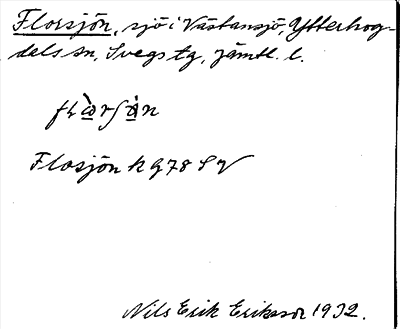 Florsjön, sjö i Västansjö, Ytterhog-
dals sn, Svegs tg, Jämtl. l.
Flosjön k g78 SV
Nils Erik Eriksson 1932.